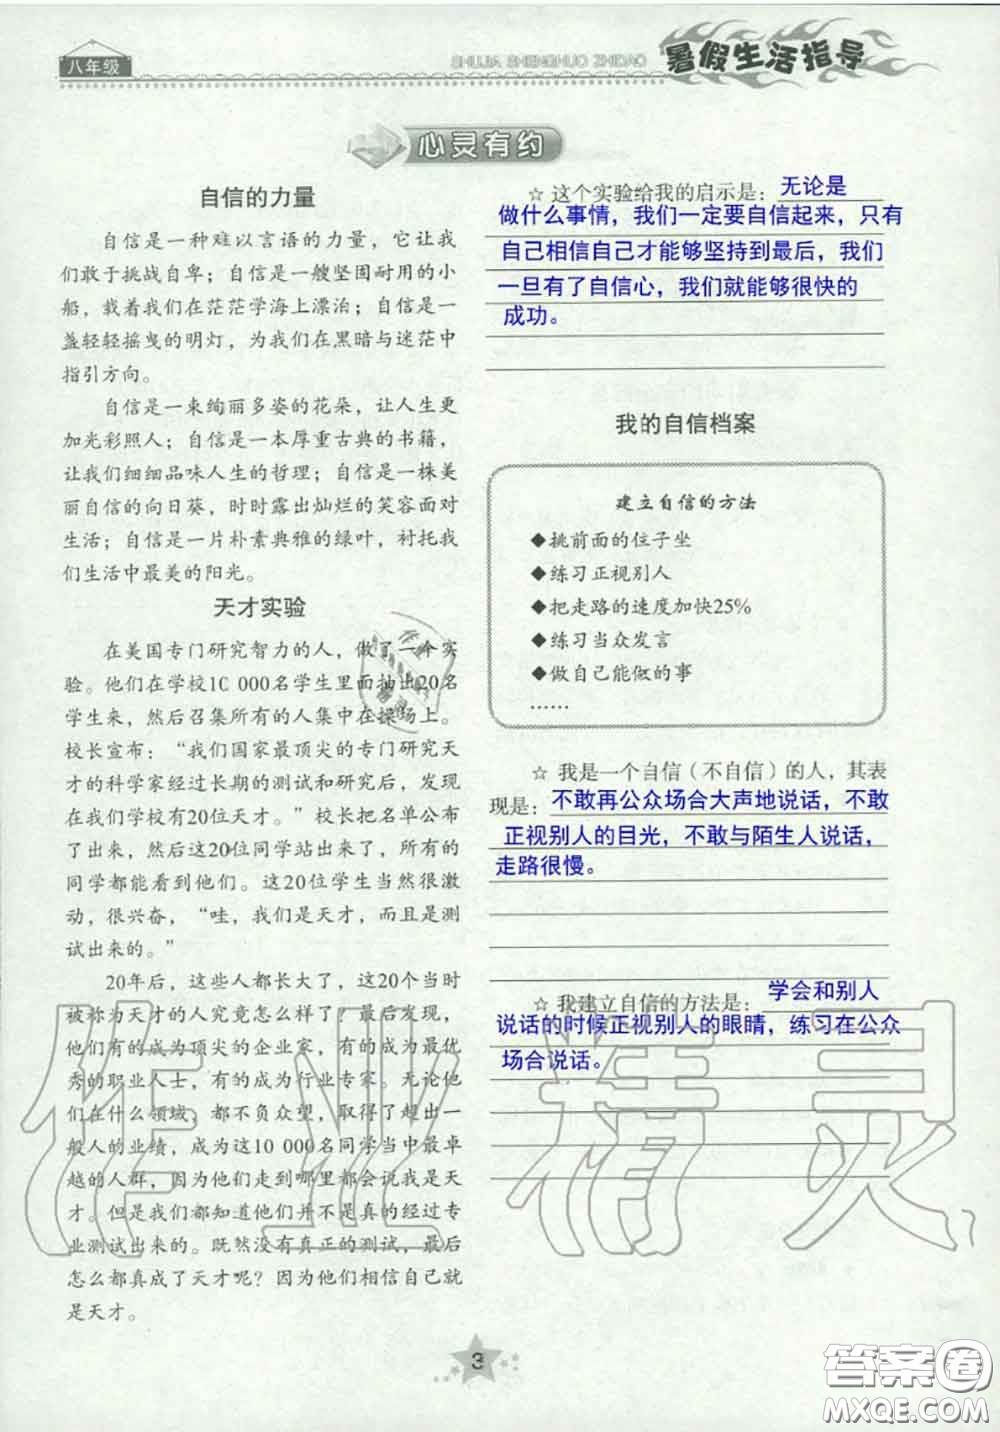 八年级
SHUJIA SHENGHUO ZHIDAO
暑假生活指导
心灵有约
自信的力量
自信是一种难以言语的力量，它让我
们敢于挑战自卑；自信是一艘坚固耐用的小
船，载着我们在茫茫学海上漂泊；自信是一
盏轻轻摇曳的明灯，为我们在黑暗与迷茫中
指引方向。
自信是一束绚丽多姿的花朵，让人生更
加光彩照人；自信是一本厚重古典的书籍，
让我们细细品味人生的哲理；自信是一株美
丽自信的向日葵，时时露出灿烂的笑容面对
生活；自信是一片朴素典雅的绿叶，衬托我
们生活中最美的阳光。
天才实验
在美国专门研究智力的人，做了一个实
验。他们在学校10 000名学生里面抽出20名
学生来，然后召集所有的人集中在操场上。
校长宣布：“我们国家最顶尖的专门研究天
才的科学家经过长期的测试和研究后，发现
在我们学校有20位天才。”校长把名单公布
了出来，然后这20位同学站出来了，所有的
同学都能看到他们。这20位学生当然很激
动，很兴奋，“哇，我们是天才，而且是测
试出来的。”
20年后，这些人都长大了，这20个当时
被称为天才的人究竟怎么样了？最后发现，
他们有的成为顶尖的企业家，有的成为最优
秀的职业人士，有的成为行业专家。无论他
们在什么领域，都不负众望，取得了超于一
般人的业绩，成为这10 000名同学当中最卓
越的人群，因为他们走到哪里都会说我是天
才。但是我们都知道他们并不是真的经过专
业测试出来的。既然没有真正的测试，最后
怎么都真成了天才呢？因为他们相信自己就
是天才。
☆ 这个实验给我的启示是：无论是
做什么事情，我们一定要自信起来，只有
自己相信自己才能够坚持到最后，我们
一旦有了自信心，我们就能够很快的
成功。
我的自信档案
建立自信的方法
◆挑前面的位子坐
◆练习正视别人
◆把走路的速度加快25%
◆练习当众发言
◆做自己能做的事
……
☆ 我是一个自信（不自信）的人，其表
现是：不敢再公众场合大声地说话，不敢
正视别人的目光，不敢与陌生人说话，
走路很慢。
☆ 我建立自信的方法是：学会和别人
说话的时候正视别人的眼睛，练习在公众
场合说话。
作业精灵
3
答案圈
MXQE.COM